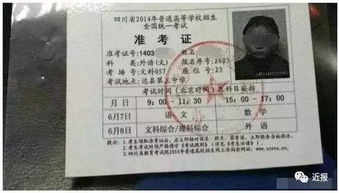 四川省2014年普通高等学校招生
全国统一考试
准考证
准考证号：1403
科类：外语(文) 报名序号：2403
考场号：文科057 座位号：23
考试地点：达县第三中学
考试时间（北京时间）及科目安排
月 日 9:00-11:30 15:00-17:00
6月7日 语文 数学
6月8日 文科综合/理科综合 外语
近报